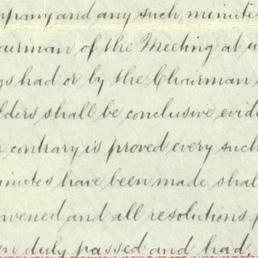 mpany and any such minute
airman of the Meeting at w
gs had or by the Chairman
lders shall be conclusive evid
contrary is proved every such
inutes have been made shal
vened and all resolutions
en duly passed and had,